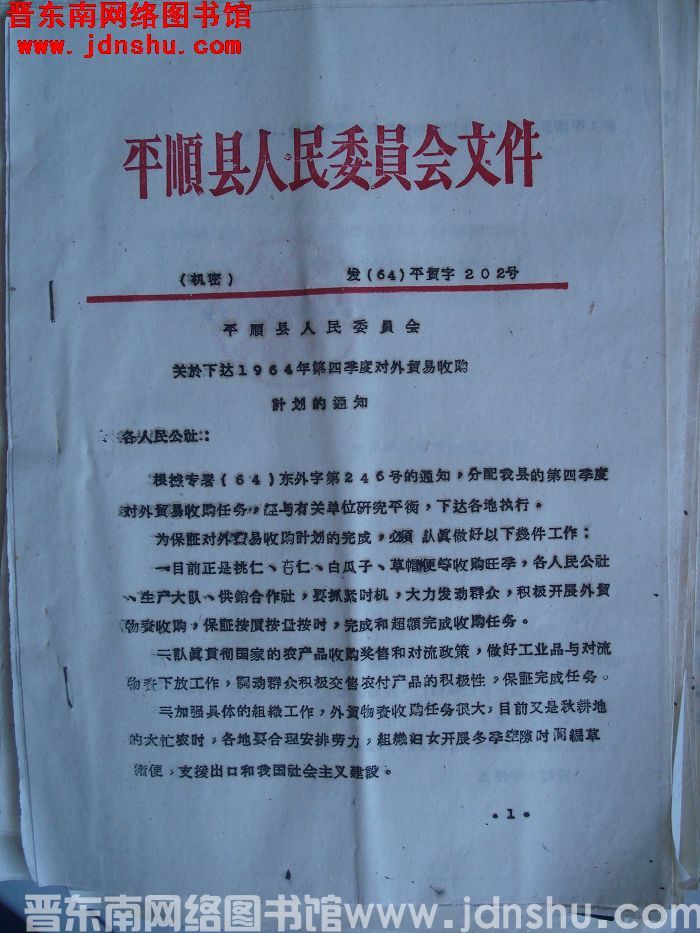 晋东南网络图书馆
www.jdnshu.com
平順县人民委員会文件
（机密） 发（64）平貿字202号
平順县人民委員会
关於下达1964年第四季度对外貿易收购
計划的通知
各人民公社：
根据专署（64）东外字第246号的通知，分配我县的第四季度
对外貿易收购任务，经与有关单位研究平衡，下达各地执行。
为保証对外貿易收购計划的完成，必須认眞做好以下幾件工作：
一目前正是挑仁、杏仁、白瓜子、草帽便等收购旺季，各人民公社
、生产大队、供銷合作社，要抓紧时机，大力发动群众，积极开展外貿
物資收购，保証按质按量按时，完成和超額完成收购任务。
二认眞貫彻国家的农产品收购奖售和对流政策，做好工业品与对流
物資下放工作，調动群众积极交售农付产品的积极性，保証完成任务。
三加强具体的組織工作，外貿物資收购任务很大，目前又是秋耕地
的大忙农时，各地要合理安排劳力，組織妇女开展冬季空隙时間編草
帽便，支援出口和我国社会主义建設。
·1·
晋东南网络图书馆www.jdnshu.com